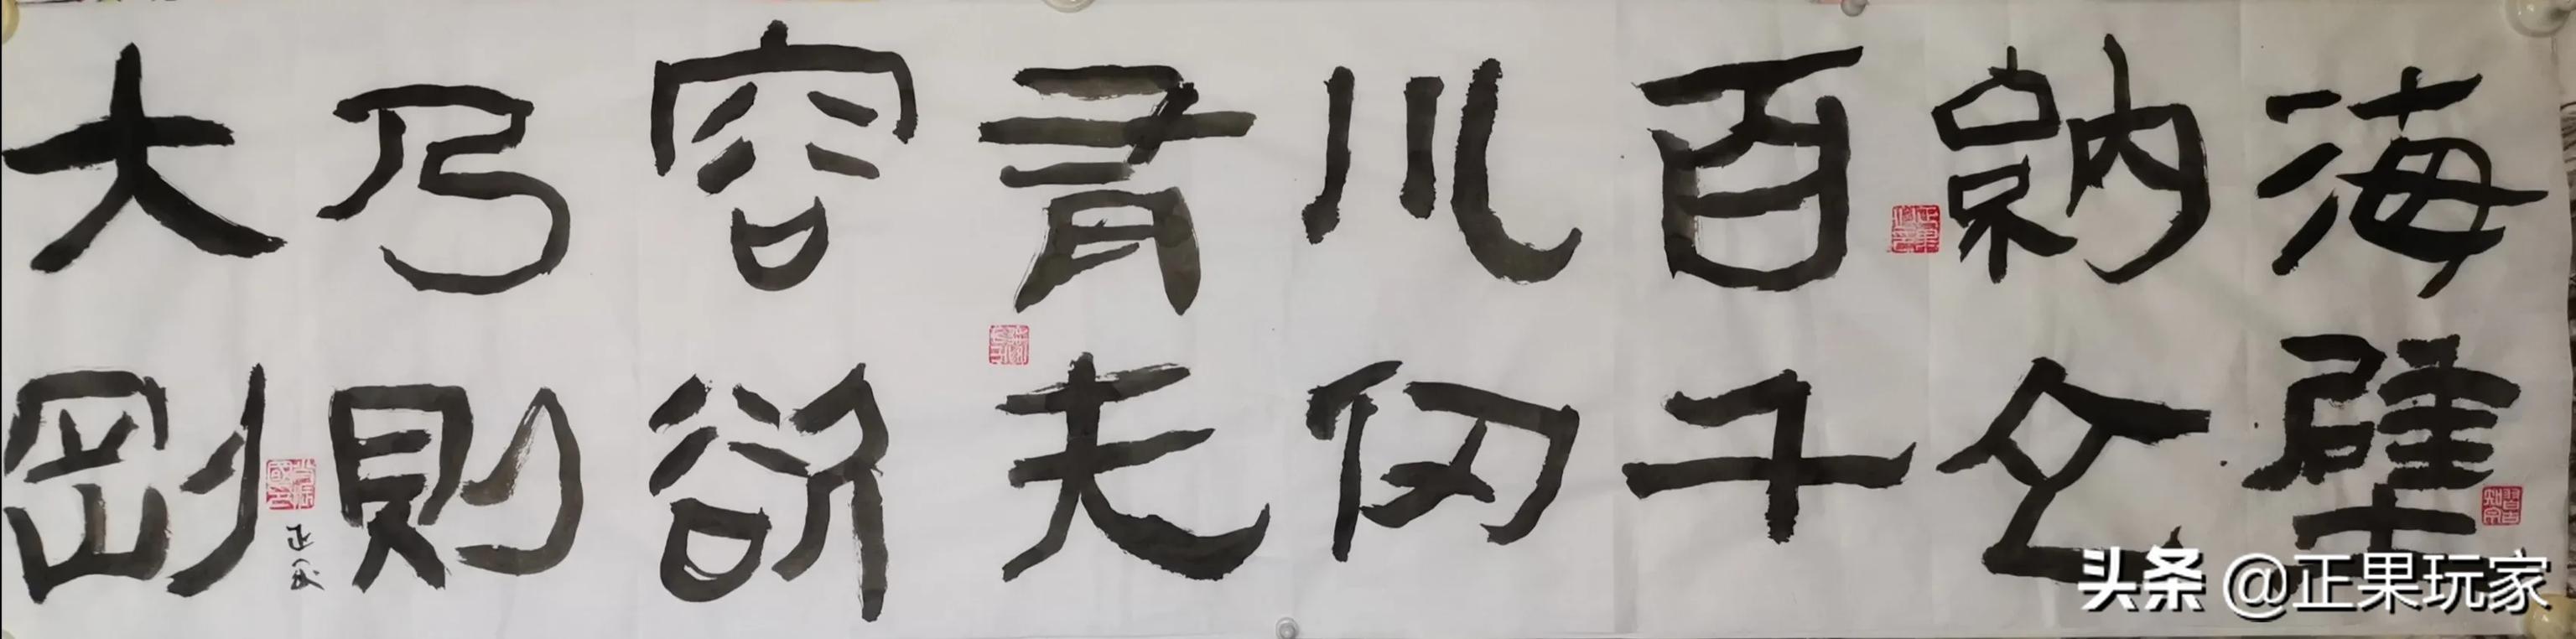 海納百川有容乃大
壁立千仞无欲則剛
头条 @正果玩家